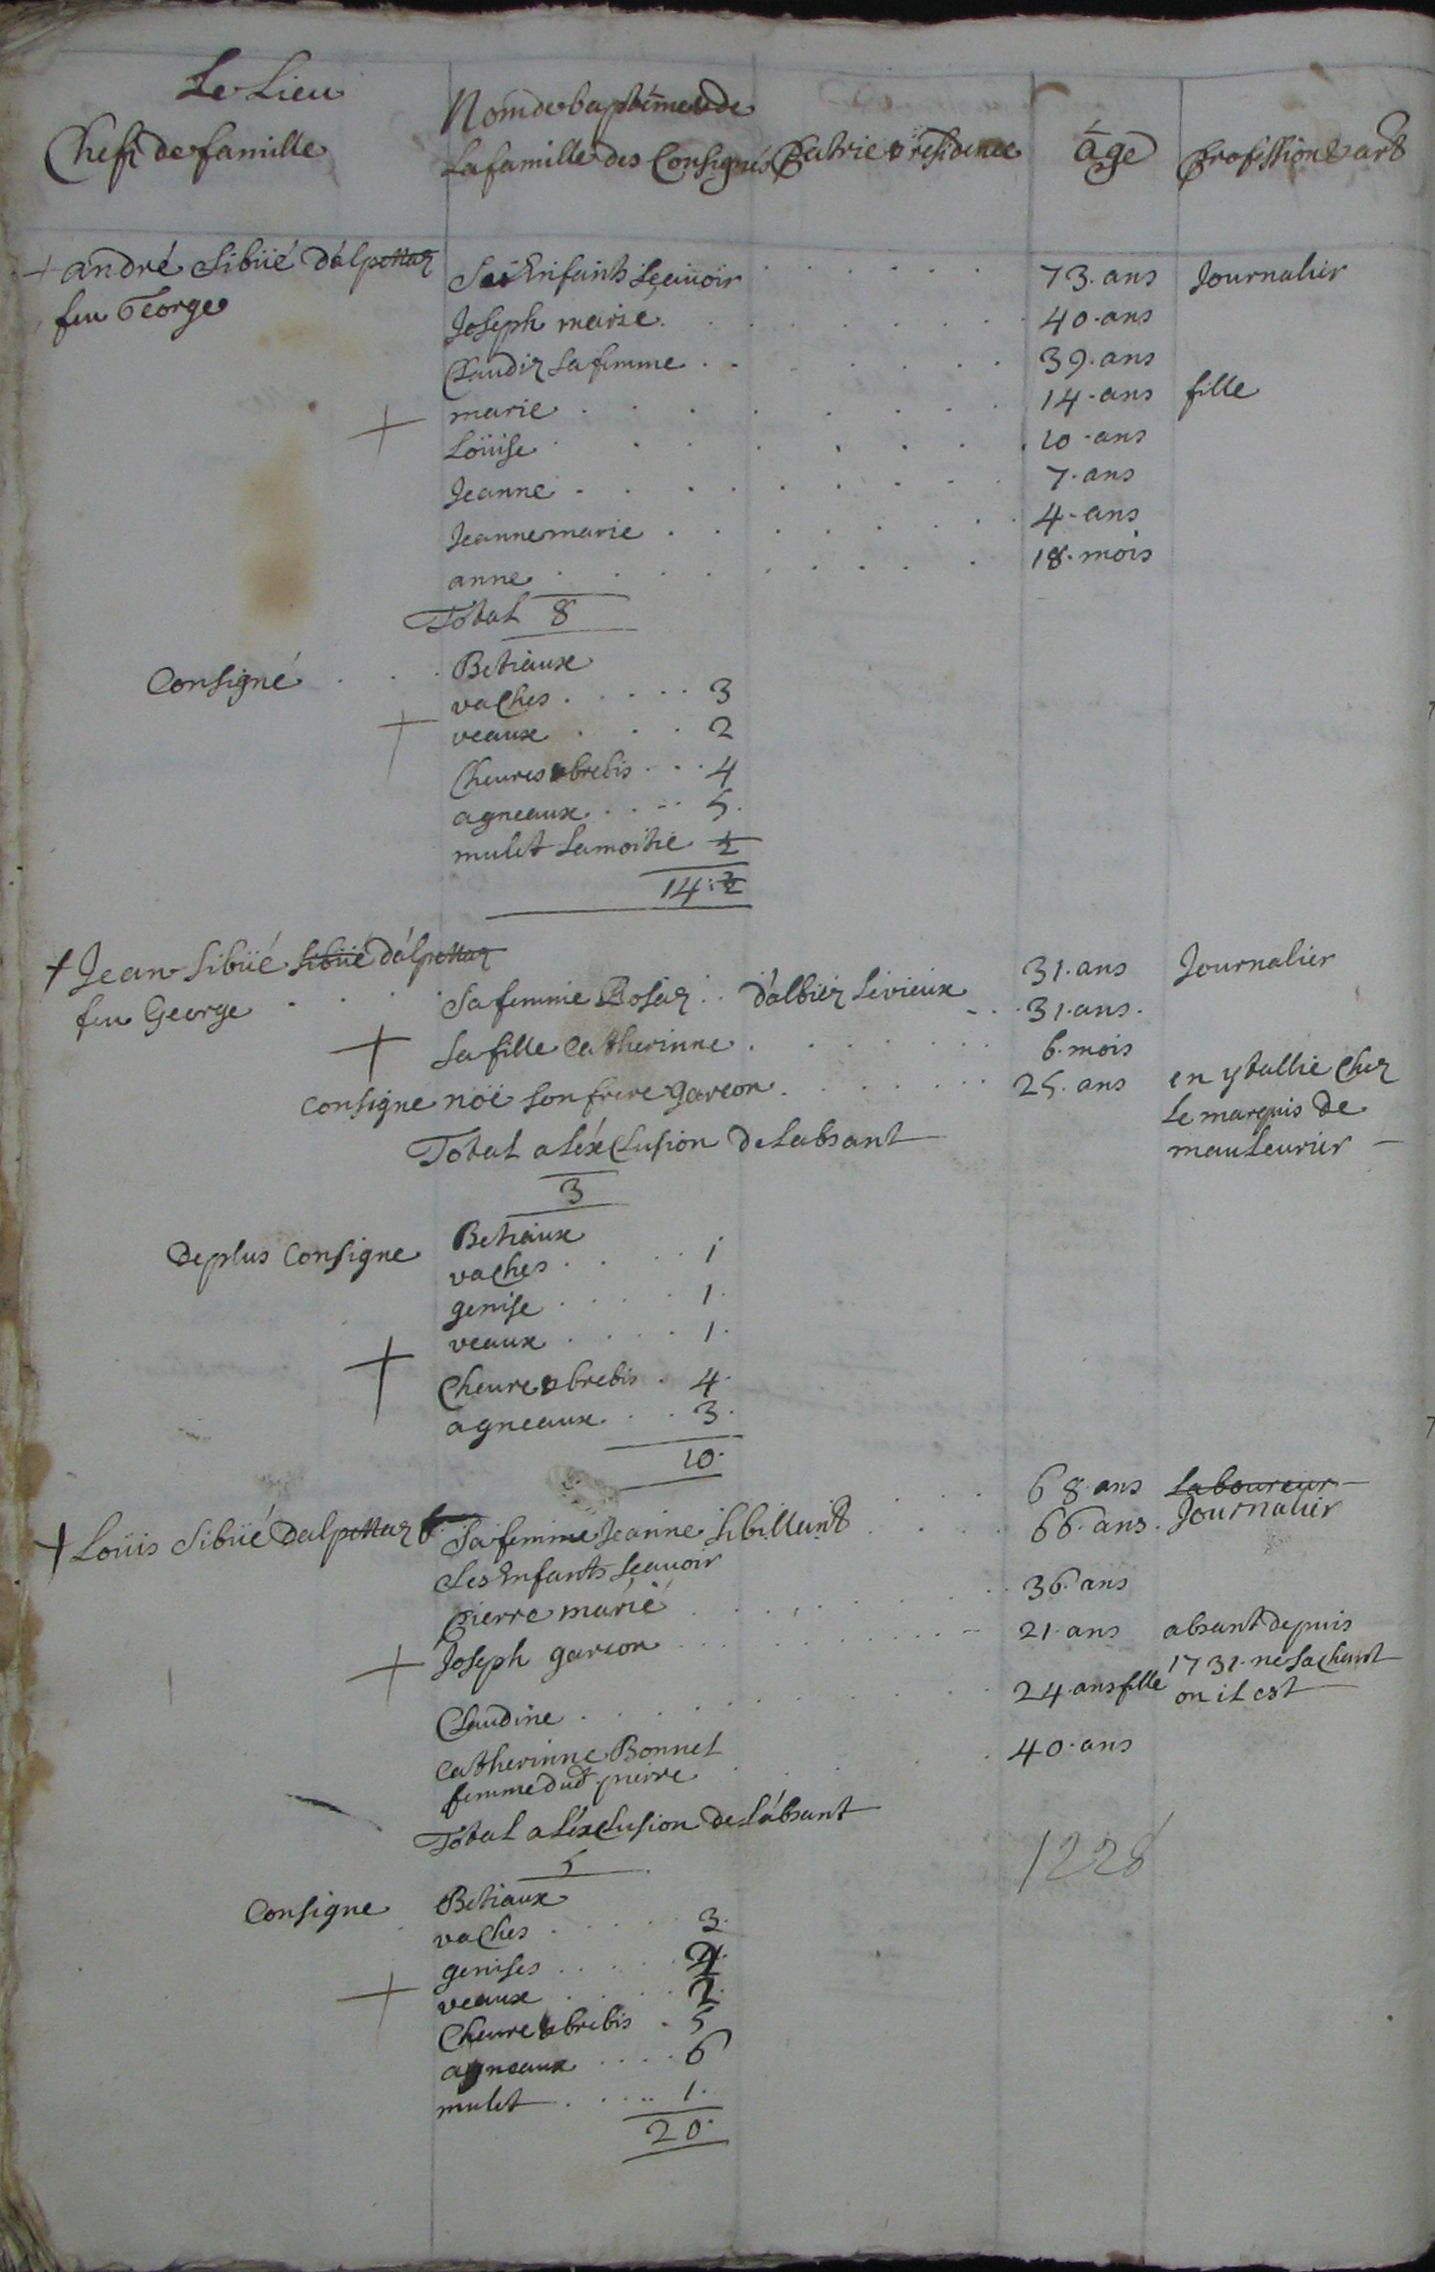 Le Lieu
Chefs de famille
Nom de baptéme & de
La famille des Consignés
Patrie & residence
âge
Profession & art
+ andré Sibüé
feu George
Ses Enfants Sçauoir . . . . . . 73. ans Journalier
Joseph marié . . . . . . . 40. ans
Claudiz sa femme . . . . . . . 39. ans
+ marie . . . . . . . . 14. ans fille
Loüise . . . . . . . . 10. ans
Jeanne . . . . . . . . 7. ans
Jeanne marie . . . . . . . 4. ans
anne . . . . . . . . 18. mois
Total 8
Consigné . . . Betiaux
vaches . . . . . 3
+ veaux . . . . 2
Cheures & brebis . . . 4
agneaux . . . . 5.
mulet La moitié ½
14: ½
+ Jean Sibüé Sibüé
feu George . . . .
31. ans Journalier
Sa femme Rosaz . . d'albiez Le vieux . . 31. ans.
+ Sa fille Catherinne . . . . . . . 6. mois
Consigne noë son frere Garcon . . . . . . 25. ans en ytallie Chez
Le marquis de
mauleurier
Total a L'éxClusion de L'absant
3
De plus Consigne Betiaux
vaches . . . . 1
genise . . . . . 1.
veaux . . . . . 1.
+ Cheure & brebis . 4.
agneaux . . . 3.
10.
+ Loüis Sibüé
68. ans Laboureur
Journalier
Sa femme Jeanne . . . . 66. ans.
Ses Enfants Sçauoir
Pierre marié . . . . . . . . 36. ans
+ Joseph garcon . . . . . . . . . 21. ans absant depuis
1731. ne sachant
ou il est
Claudine . . . . . . . . 24. ans fille
Catherinne Bonnel
femme dud.t pierre . . . . 40. ans
Total a L'éxClusion de L'absant
5
1228
Consigne Betiaux
vaches . . . . . 3.
genises . . . . .
+ veaux . . . . 2.
Cheure & brebis . 5
agneaux . . . . 6
mulet . . . . . 1.
20.